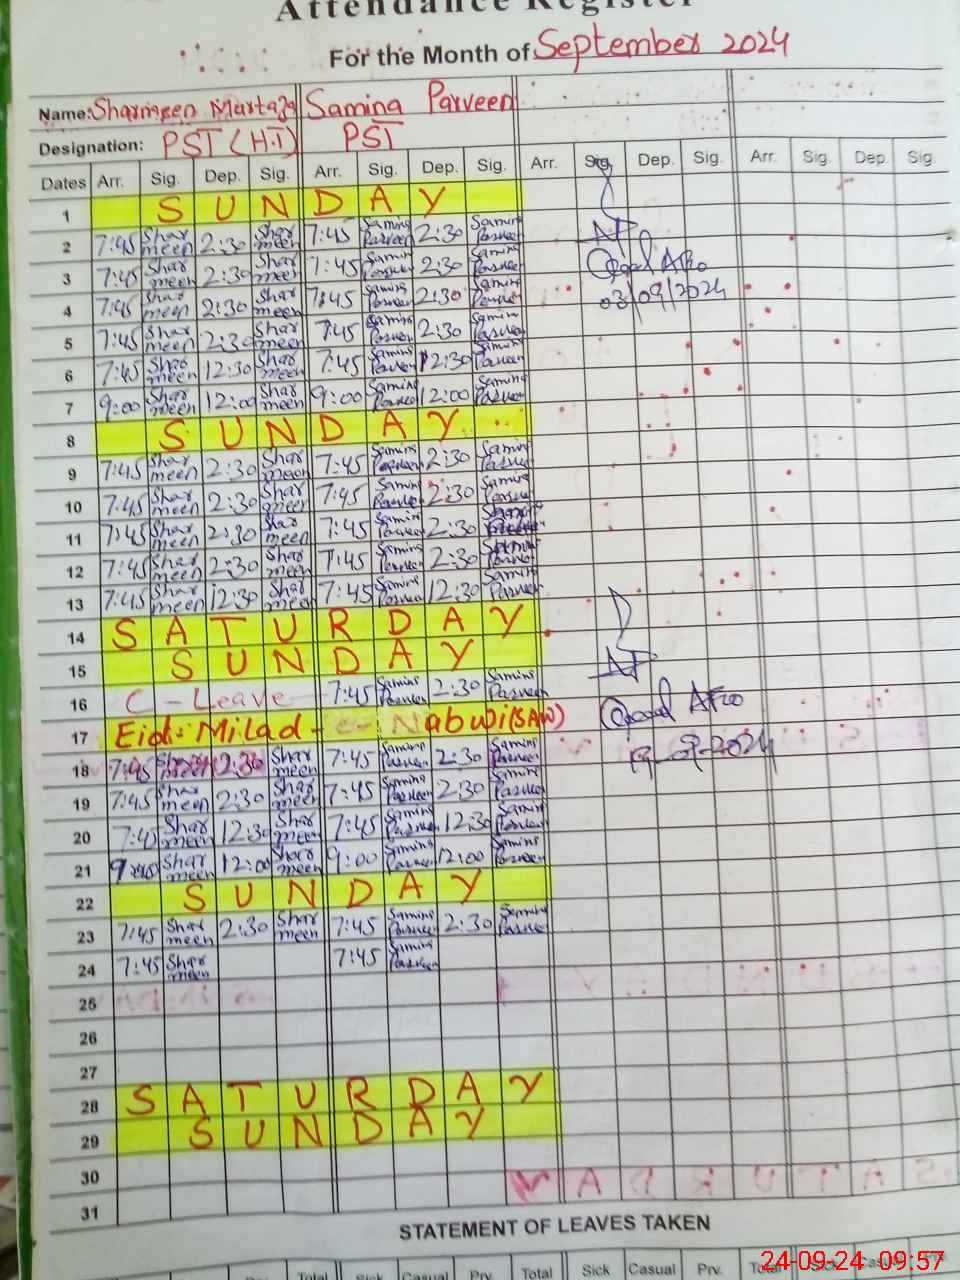 Attendance Register
For the Month of September 2024
Name: Sharmeen Murtaza Samina Parveen
Designation: PST (H.T) PST
Dates Arr. Sig. Dep. Sig. Arr. Sig. Dep. Sig. Arr. Sig. Dep. Sig. Arr. Sig. Dep. Sig.
1 SUNDAY
2 7:45 Sharmeen 2:30 Sharmeen 7:45 Samina Parveen 2:30 Samina Parveen
3 7:45 Sharmeen 2:30 Sharmeen 7:45 Samina Parveen 2:30 Samina Parveen
03/09/2024
4 7:45 Sharmeen 2:30 Sharmeen 7:45 Samina Parveen 2:30 Samina Parveen
5 7:45 Sharmeen 2:30 Sharmeen 7:45 Samina Parveen 2:30 Samina Parveen
6 7:45 Sharmeen 12:30 Sharmeen 7:45 Samina Parveen 12:30 Samina Parveen
7 9:00 Sharmeen 12:00 Sharmeen 9:00 Samina Parveen 12:00 Samina Parveen
8 SUNDAY
9 7:45 Sharmeen 2:30 Sharmeen 7:45 Samina Parveen 2:30 Samina Parveen
10 7:45 Sharmeen 2:30 Sharmeen 7:45 Samina Parveen 2:30 Samina Parveen
11 7:45 Sharmeen 2:30 Sharmeen 7:45 Samina Parveen 2:30 Samina Parveen
12 7:45 Sharmeen 2:30 Sharmeen 7:45 Samina Parveen 2:30 Samina Parveen
13 7:45 Sharmeen 12:30 Sharmeen 7:45 Samina Parveen 12:30 Samina Parveen
14 SATURDAY
15 SUNDAY
16 C-Leave 7:45 Samina Parveen 2:30 Samina Parveen
17 Eid-Milad-e-Nabwi(SAW)
18 7:45 Sharmeen 2:30 Sharmeen 7:45 Samina Parveen 2:30 Samina Parveen
19 7:45 Sharmeen 2:30 Sharmeen 7:45 Samina Parveen 2:30 Samina Parveen
20 7:45 Sharmeen 12:30 Sharmeen 7:45 Samina Parveen 12:30 Samina Parveen
21 9:00 Sharmeen 12:00 Sharmeen 9:00 Samina Parveen 12:00 Samina Parveen
22 SUNDAY
23 7:45 Sharmeen 2:30 Sharmeen 7:45 Samina Parveen 2:30 Samina Parveen
24 7:45 Sharmeen 7:45 Samina Parveen
25
26
27
28 SATURDAY
29 SUNDAY
30
31
STATEMENT OF LEAVES TAKEN
Prv. Total Sick Casual Prv. Total Sick Casual Prv. Total Sick Casual Prv.
24-09-24 09:57